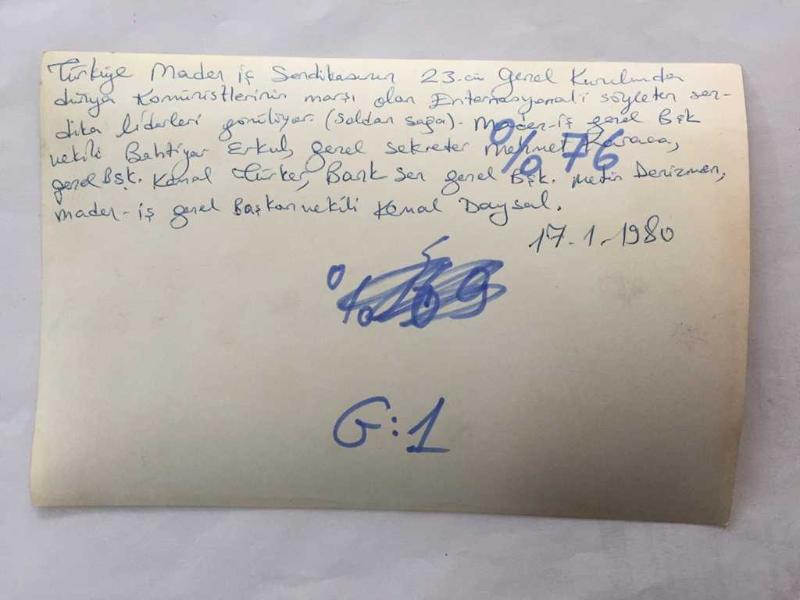 Türkiye Maden iş Sendikasının 23.cü Genel Kurulunda
dünya Komünistlerinin marşı olan Enternasyonali söyleten sen-
dika liderleri görülüyor. (Soldan sağa)- Maden-iş genel Bşk
vekili Bahtiyar Erkul, genel sekreter Mehmet Karaca,
% 76
genel Bşk. Kemal Türker, Bank sen genel Bşk. Metin Denizmen,
maden-iş genel Başkanvekili Kemal Daysal.
17.1.1980
%
G:1